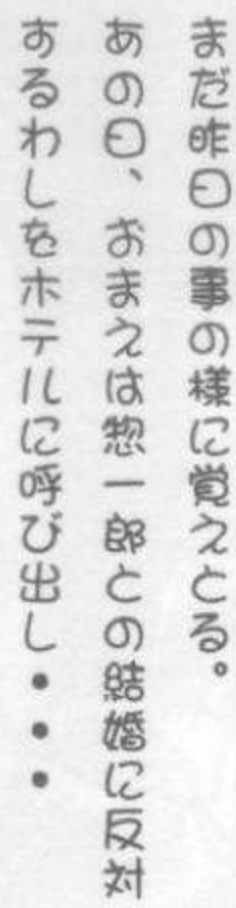 まだ昨日の事の様に覚えとる。
あの日、おまえは惣一郎との結婚に反対
するわしをホテルに呼び出し・・・